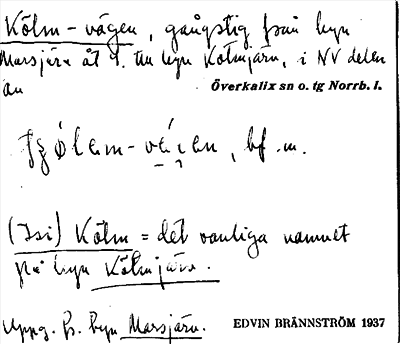 Kölm-vägen, gångstig från byn
Marsjärv åt f. till byn Kölmjärv, i NV delen
av Överkalix sn o. tg Norrb. l.
bf. m.
(Isi) Kölm = det vanliga namnet
på byn Kölmjärv.
Uppg. fr. byn Marsjärv. EDVIN BRÄNNSTRÖM 1937